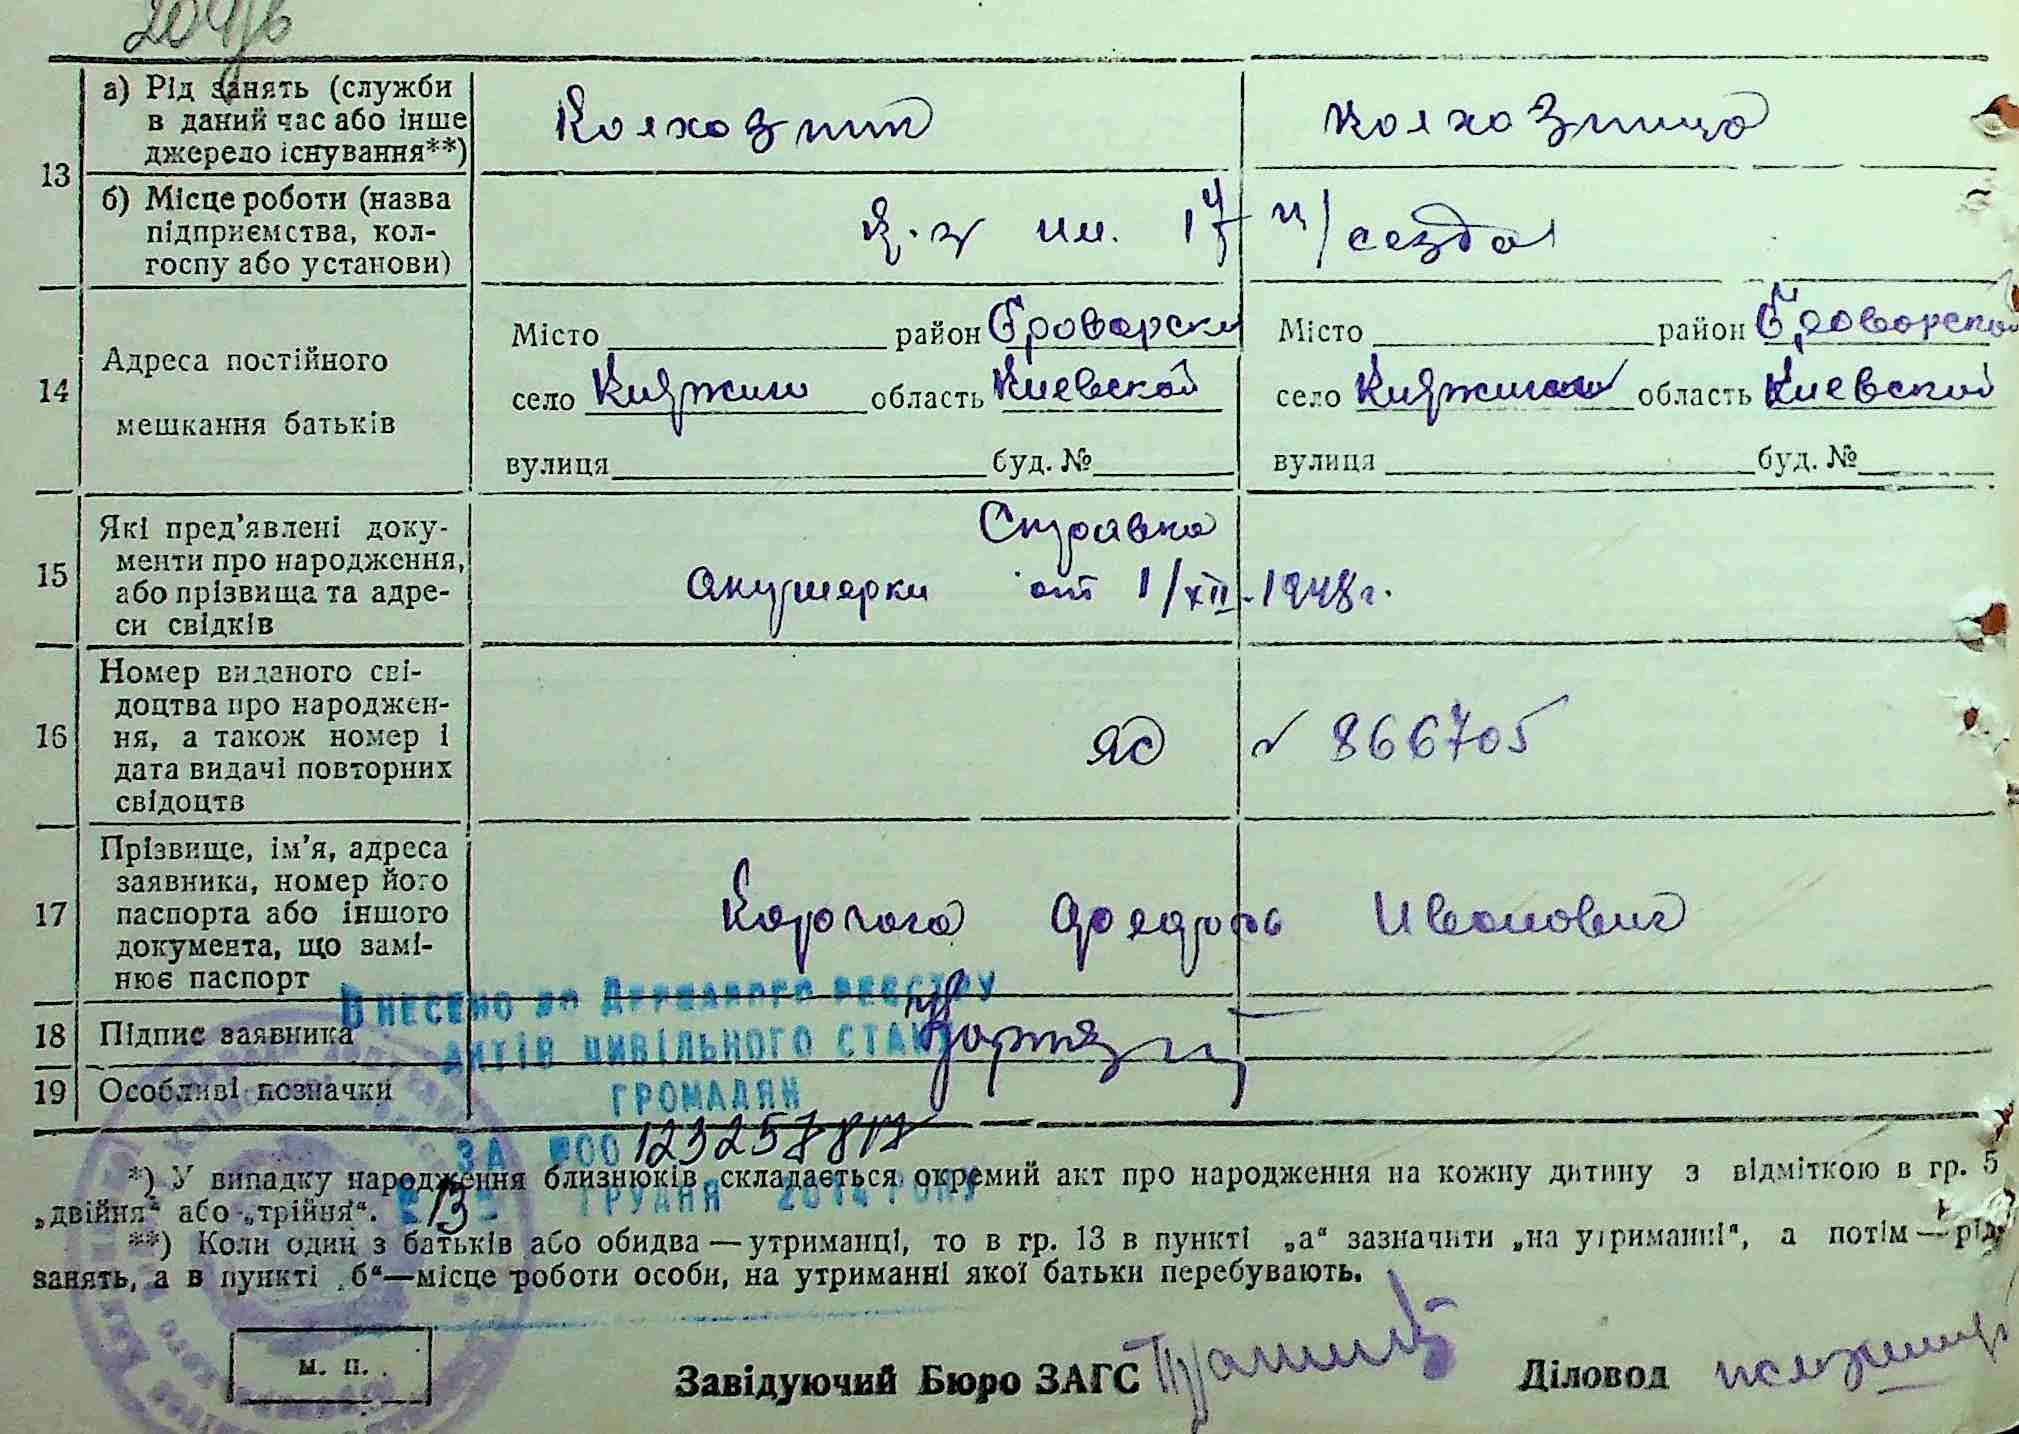 а) Рід занять (служби
в даний час або інше
джерело існування**)
Колхозник
колхозница
13
б) Місце роботи (назва
підприємства, кол-
госпу або установи)
к-з им. 17 п/сезда
14
Адреса постійного
мешкання батьків
Місто район Броварски
село Княжичи область Киевской
вулиця буд. №
Місто район Броварской
село Княжичи область Киевской
вулиця буд. №
15
Які пред'явлені доку-
менти про народження,
або прізвища та адре-
си свідків
Справка
акушерки от 1/XII-1948г.
16
Номер виданого сві-
доцтва про народжен-
ня, а також номер і
дата видачі повторних
свідоцтв
ЯО № 866705
17
Прізвище, ім'я, адреса
заявника, номер його
паспорта або іншого
документа, що замі-
нює паспорт
Федоръ Иванович
ВНЕСЕНО ДО ДЕРЖАВНОГО РЕЄСТРУ
18 Підпис заявника
АКТІВ ЦИВІЛЬНОГО СТАНУ
19 Особливі позначки
ГРОМАДЯН
ЗА №00123257817
13 ГРУДНЯ 2014 РОКУ
*) У випадку народження близнюків складається окремий акт про народження на кожну дитину з відміткою в гр. 5
„двійня“ або „трійня“.
**) Коли один з батьків або обидва — утриманці, то в гр. 13 в пункті „а“ зазначити „на утриманні“, а потім — рід
занять, а в пункті „б“—місце роботи особи, на утриманні якої батьки перебувають.
М. П.
Завідуючий Бюро ЗАГС
Діловод